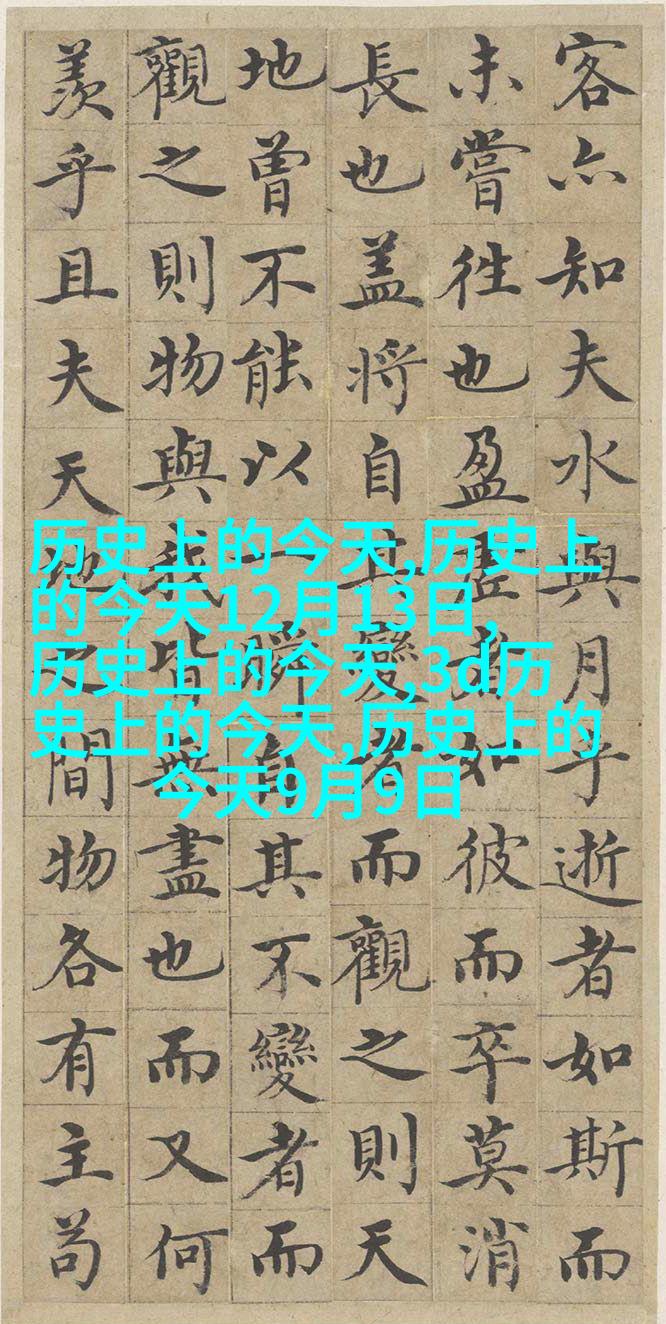 客亦知夫水與月乎逝者如斯而
未嘗往也盈虛者如彼而卒莫消
長也盖將自其變者而觀之則天
地曾不能以一瞬自其不變者而
觀之則物與我皆無盡也而又何
羨乎且夫天地之間物各有主苟
历史上的今天,历史上
的今天12月13日,
历史上的今天,3d历
史上的今天,历史上的
今天9月9日